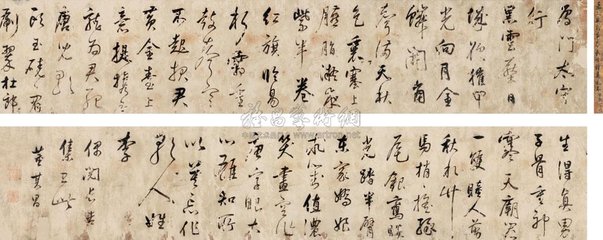 雁門太守
行
黑雲壓城
城欲摧甲
光向月金
鱗開角
聲滿天秋
色裏塞上
臙脂凝夜
紫半卷
紅旗臨易
水霜重
鼓寒聲
不起報君
黃金臺上
意提攜玉
龍為君死
唐兒歌
頭玉磽磽眉
刷翠杜郎
生得真男
子骨重神
寒天廟器
一雙瞳人剪
秋水竹
馬梢梢搖綠
尾銀鸞睒
光踏半臂
東家嬌娘
求對值濃
笑畫空作
唐字眼大
心雄知所
以莫忘作
歌人姓
李
偶閱長吉
集書此
董其昌